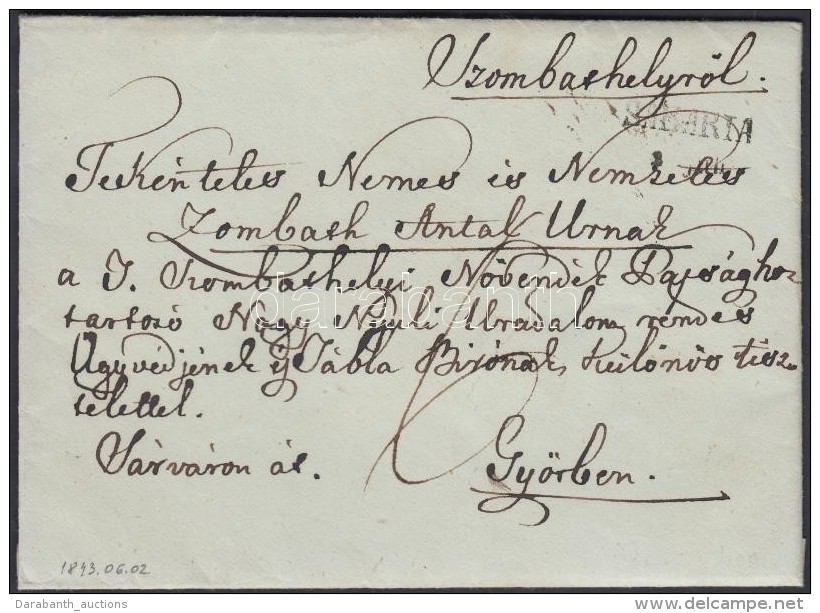 Szombathelyröl.
SABARIA
Tekéntetes Nemes és Nemzetes
Zombath Antal Urnak
a T. Szombathelyi Növendék Papsághoz
tartozó Nagy Urádalom rendes
Ügyvédjének és Tábla Birónak, különös tisz-
telettel.
Sárváron át. 6
Győrben.
darabanth
1843.06.02
Darabanth_auctions
delcampe.net